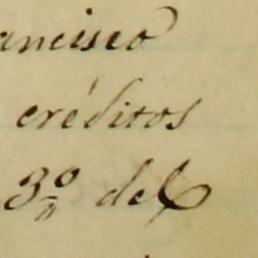 ancisco
créditos
3º del